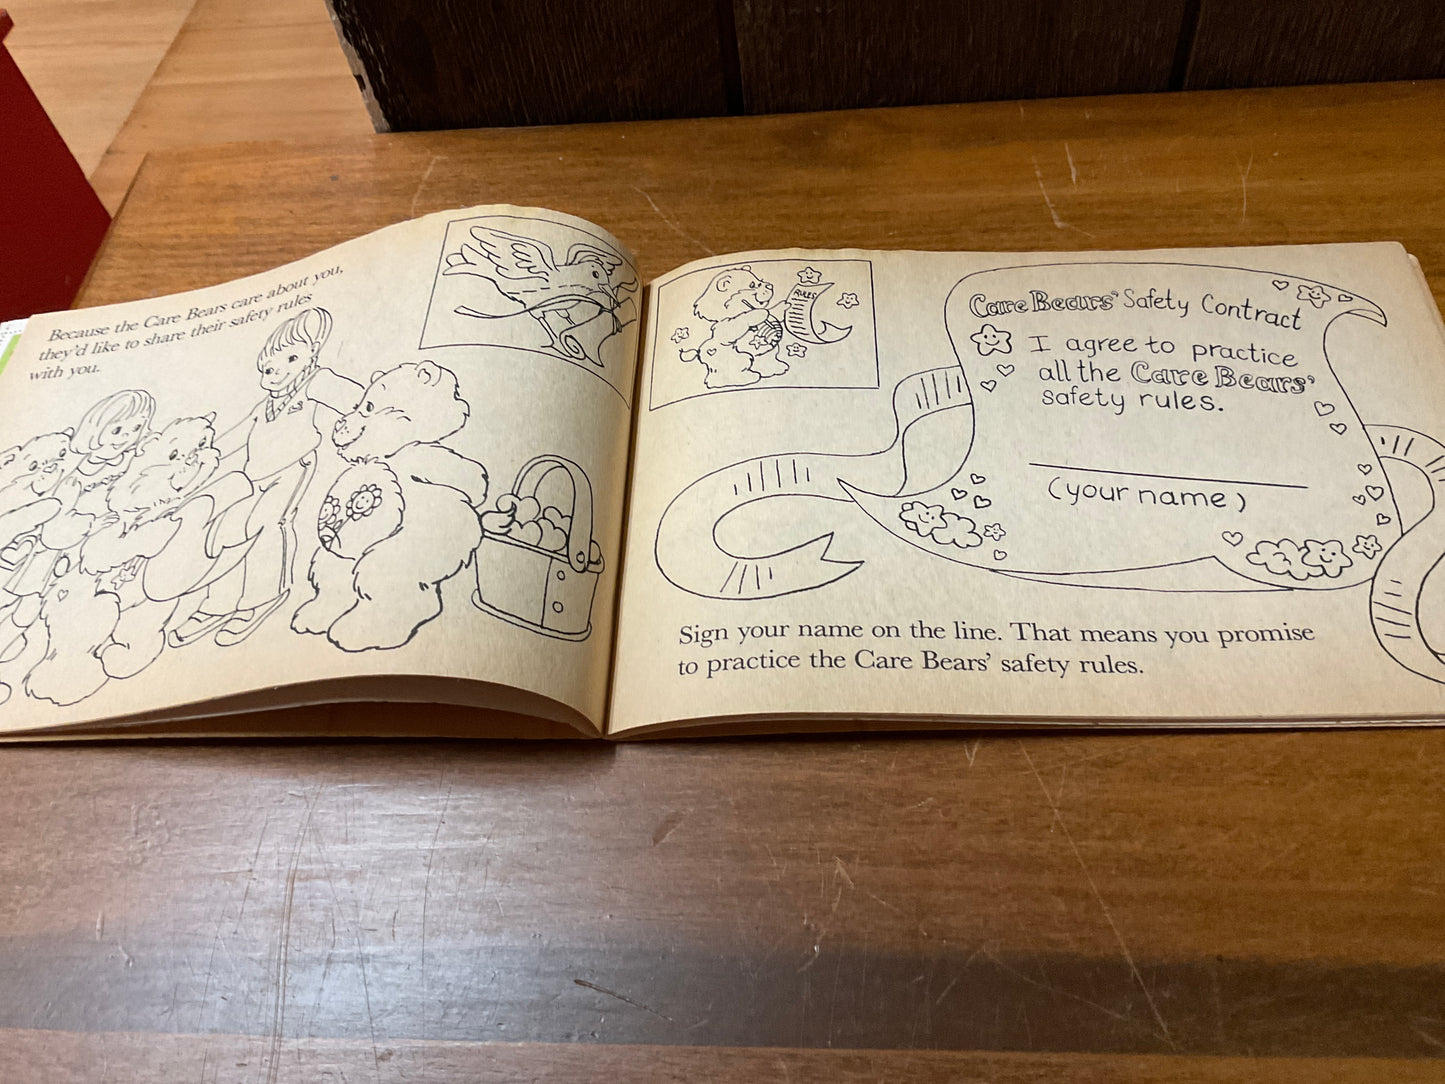 Because the Care Bears care about you,
they'd like to share their safety rules
with you.
RULES
Care Bears' Safety Contract
I agree to practice
all the Care Bears'
safety rules.
(your name)
Sign your name on the line. That means you promise
to practice the Care Bears' safety rules.